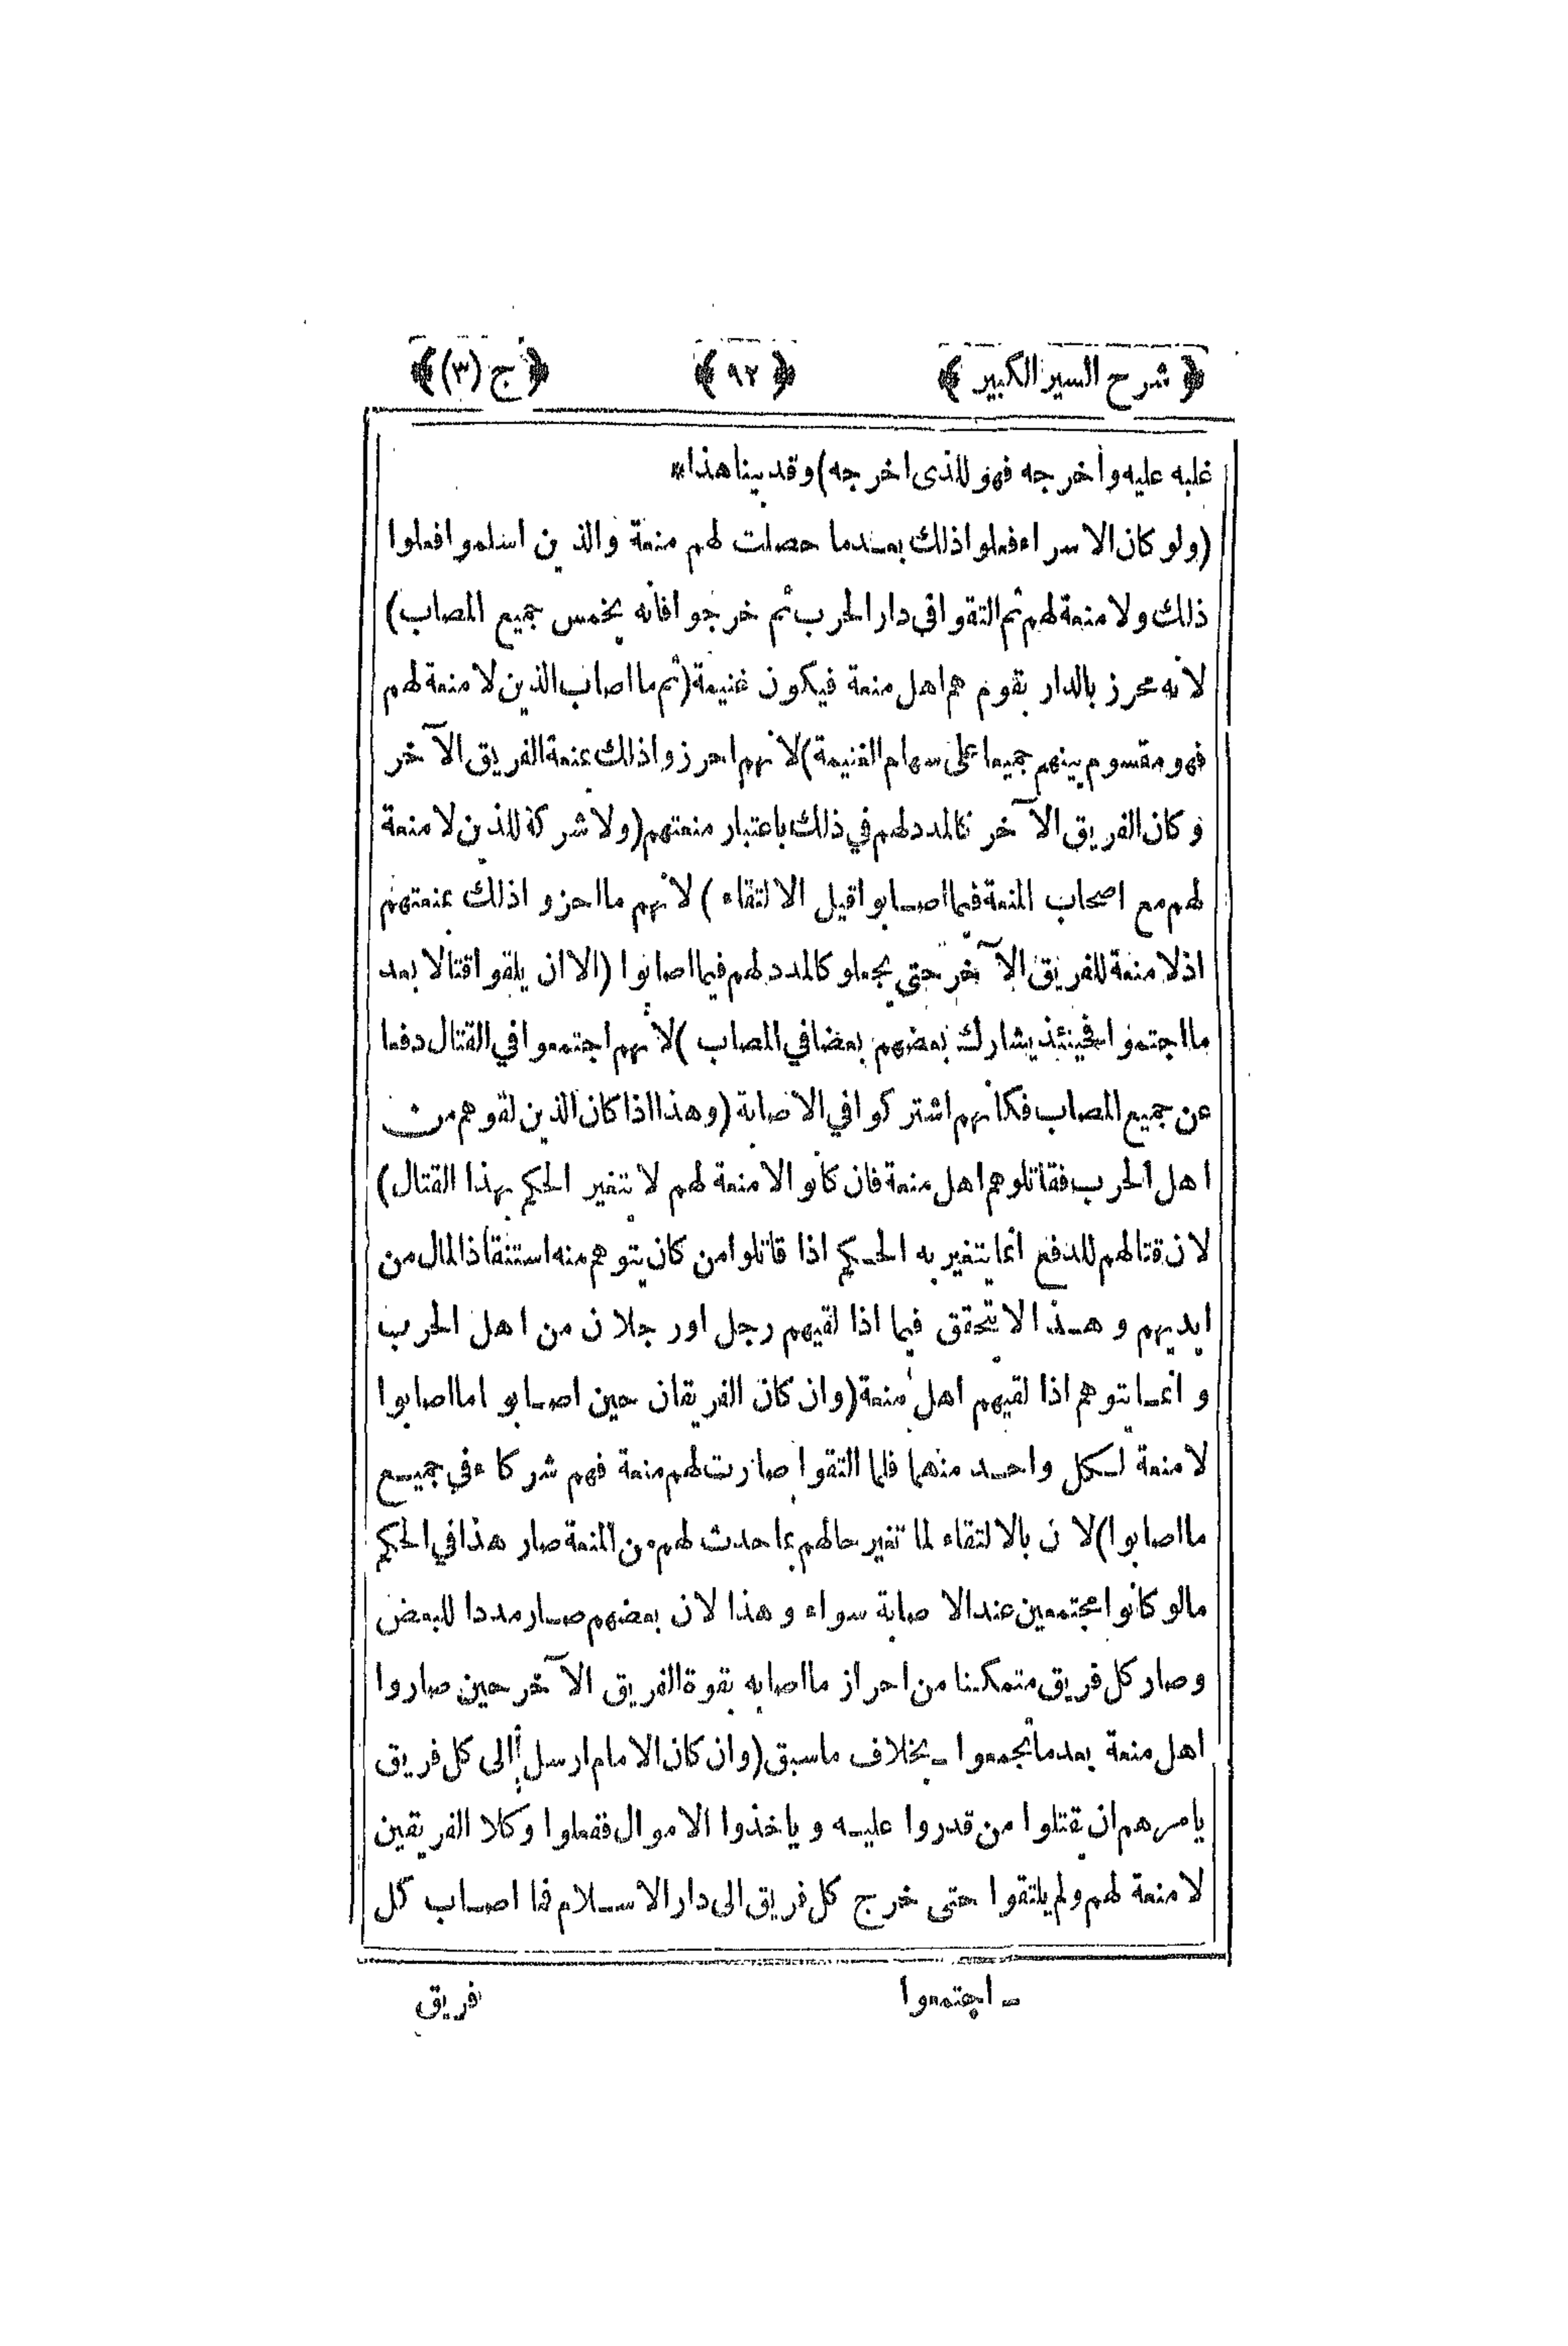 ﴿ شرح السير الكبير ﴾ ﴿ ٩٢ ﴾ ﴿ ج (٣) ﴾
غلبه عليه وأخرجه فهو للذى اخرجه) وقد بينا هذا *
(ولو كان الاسراء فعلوا ذلك بعد ما حصلت لهم منعة والذين اسلموا فعلوا
ذلك ولا منعة لهم ثم التقوا فى دار الحرب ثم خرجوا فانه يخمس جميع المصاب)
لانه محرز بالدار بقوم هم اهل منعة فيكون غنيمة (ثم ما اصاب الذين لا منعة لهم
فهو مقسوم بينهم جميعا على سهام الغنيمة) لانهم احرزوا ذلك بمنعة الفريق الآخر
وكان الفريق الآخر كالمدد لهم في ذلك باعتبار منعتهم (ولا شركة للذين لا منعة
لهم مع اصحاب المنعة فيما اصابوا قبل الالتقاء) لانهم ما احرزوا ذلك بمنعتهم
اذ لا منعة للفريق الآخر حتى يجعلو كالمدد لهم فيما اصابوا (الا ان يلقوا قتالا بعد
ما اجتمعوا فحينئذ يشارك بعضهم بعضا في المصاب) لانهم اجتمعوا في القتال دفعا
عن جميع المصاب فكأنهم اشتركوا في الاصابة (وهذا اذا كان الذين لقوهم من
اهل الحرب فقاتلوهم اهل منعة فان كانوا لا منعة لهم لا يتغير الحكم بهذا القتال)
لان قتالهم للدفع انما يتغير به الحكم اذا قاتلوا من كان يتوهم منه استنقاذ المال من
ايديهم وهذا لا يتحقق فيما اذا لقيهم رجل او رجلان من اهل الحرب
وانما يتوهم اذا لقيهم اهل منعة (وان كان الفريقان حين اصابوا ما اصابوا
لا منعة لكل واحد منهما فلما التقوا صارت لهم منعة فهم شركاء في جميع
ما اصابوا) لان بالالتقاء لما تغير حالهم بما حدث لهم من المنعة صار هذا في الحكم
مالو كانوا مجتمعين عند الاصابة سواء وهذا لان بعضهم صار مددا للبعض
وصار كل فريق متمكينا من احراز ما اصابه بقوة الفريق الآخر حين صاروا
اهل منعة بعد ما تجمعوا ـ بخلاف ما سبق (وان كان الامام ارسل إلى كل فريق
يامرهم ان يقتلوا من قدروا عليه وياخذوا الاموال ففعلوا وكلا الفريقين
لا منعة لهم ولم يلتقوا حتى خرج كل فريق الى دار الاسلام فما اصاب كل
ـ اجتمعوا فريق